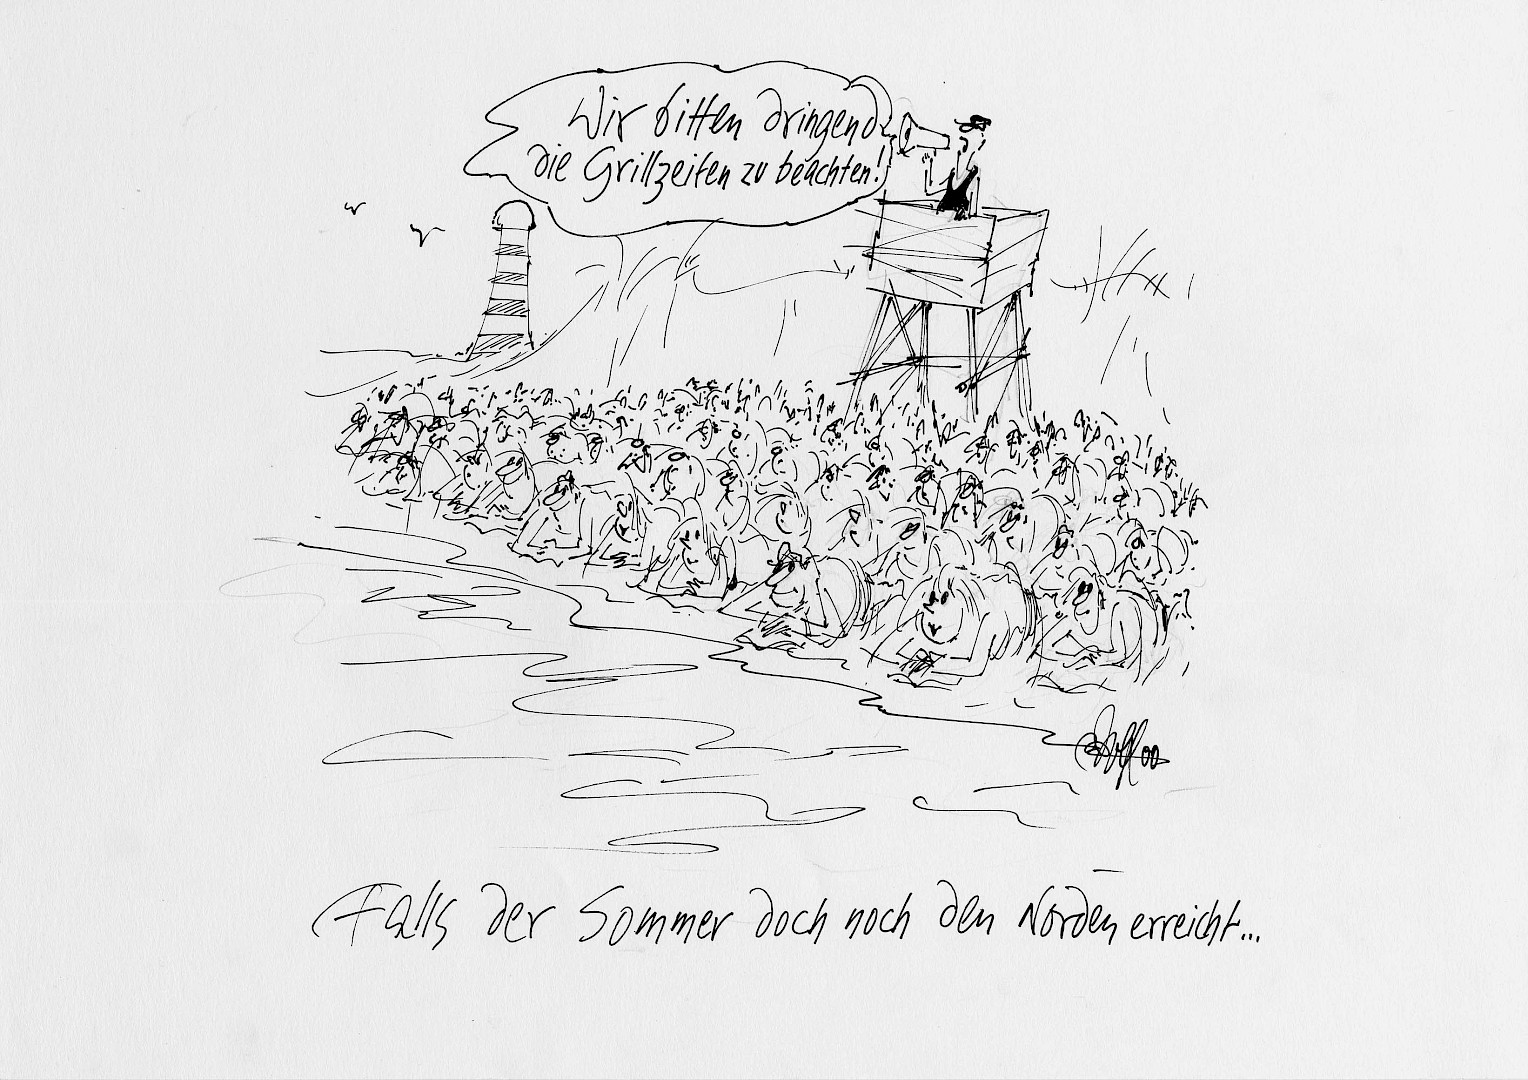 Wir bitten dringend
die Grillzeiten zu beachten!
Falls der Sommer doch noch den Norden erreicht...